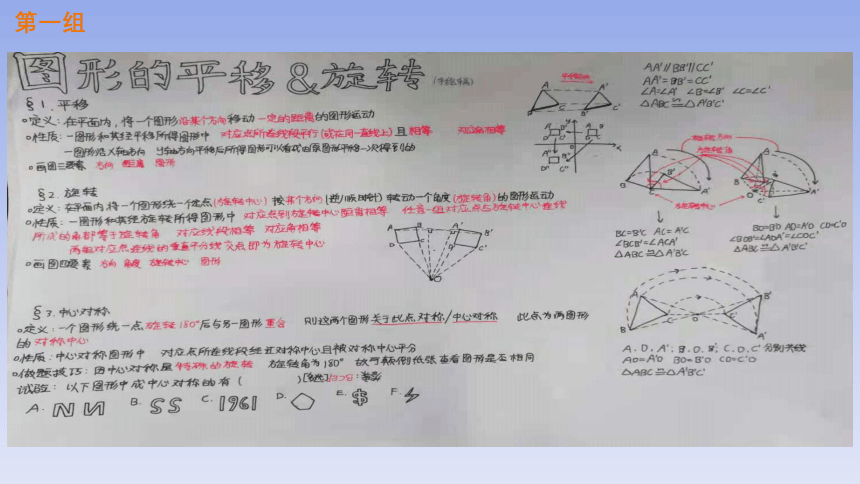 第一组
图形的平移&旋转
§1.平移
定义:在平面内,将一个图形沿某个方向移动一定的距离的图形运动
性质:一图形和其经平移所得图形中 对应点所连线段平行(或在同一直线上)且相等 对应角相等
画图三要素 方向 距离 图形
§2.旋转
定义:在平面内,将一个图形绕一个定点(旋转中心)按某个方向(逆/顺时针)转动一个角度(旋转角)的图形运动
性质:一图形和其经旋转所得图形中 对应点到旋转中心距离相等 任意一组对应点与旋转中心连线
所成的角都等于旋转角 对应线段相等 对应角相等
两组对应点连线的垂直平分线交点即为旋转中心
画图四要素 方向 角度 旋转中心 图形
§3.中心对称
定义:一个图形绕一点旋转180°后与另一图形重合 则这两个图形关于此点对称/中心对称 此点为两图形
的对称中心
性质:中心对称图形中 对应点所连线段经过对称中心且被对称中心平分
做题技巧:因中心对称是特殊的旋转 旋转角为180° 故可颠倒纸张查看图形是否相同
试验:以下图形中成中心对称的有( )
A. NN B. SS C. 1961 D. E. $ F.
AA'∥BB'∥CC'
AA'=BB'=CC'
∠A=∠A' ∠B=∠B' ∠C=∠C'
△ABC≌△A'B'C'
旋转方向
旋转中心
BC=B'C AC=A'C
∠BCB'=∠ACA'
△ABC≌△A'B'C
BO=B'O AO=A'O CO=C'O
∠BOB'=∠AOA'=∠COC'
△ABC≌△A'B'C'
A.O.A';B.O.B';C.O.C'分别共线
AO=A'O BO=B'O CO=C'O
△ABC≌△A'B'C'